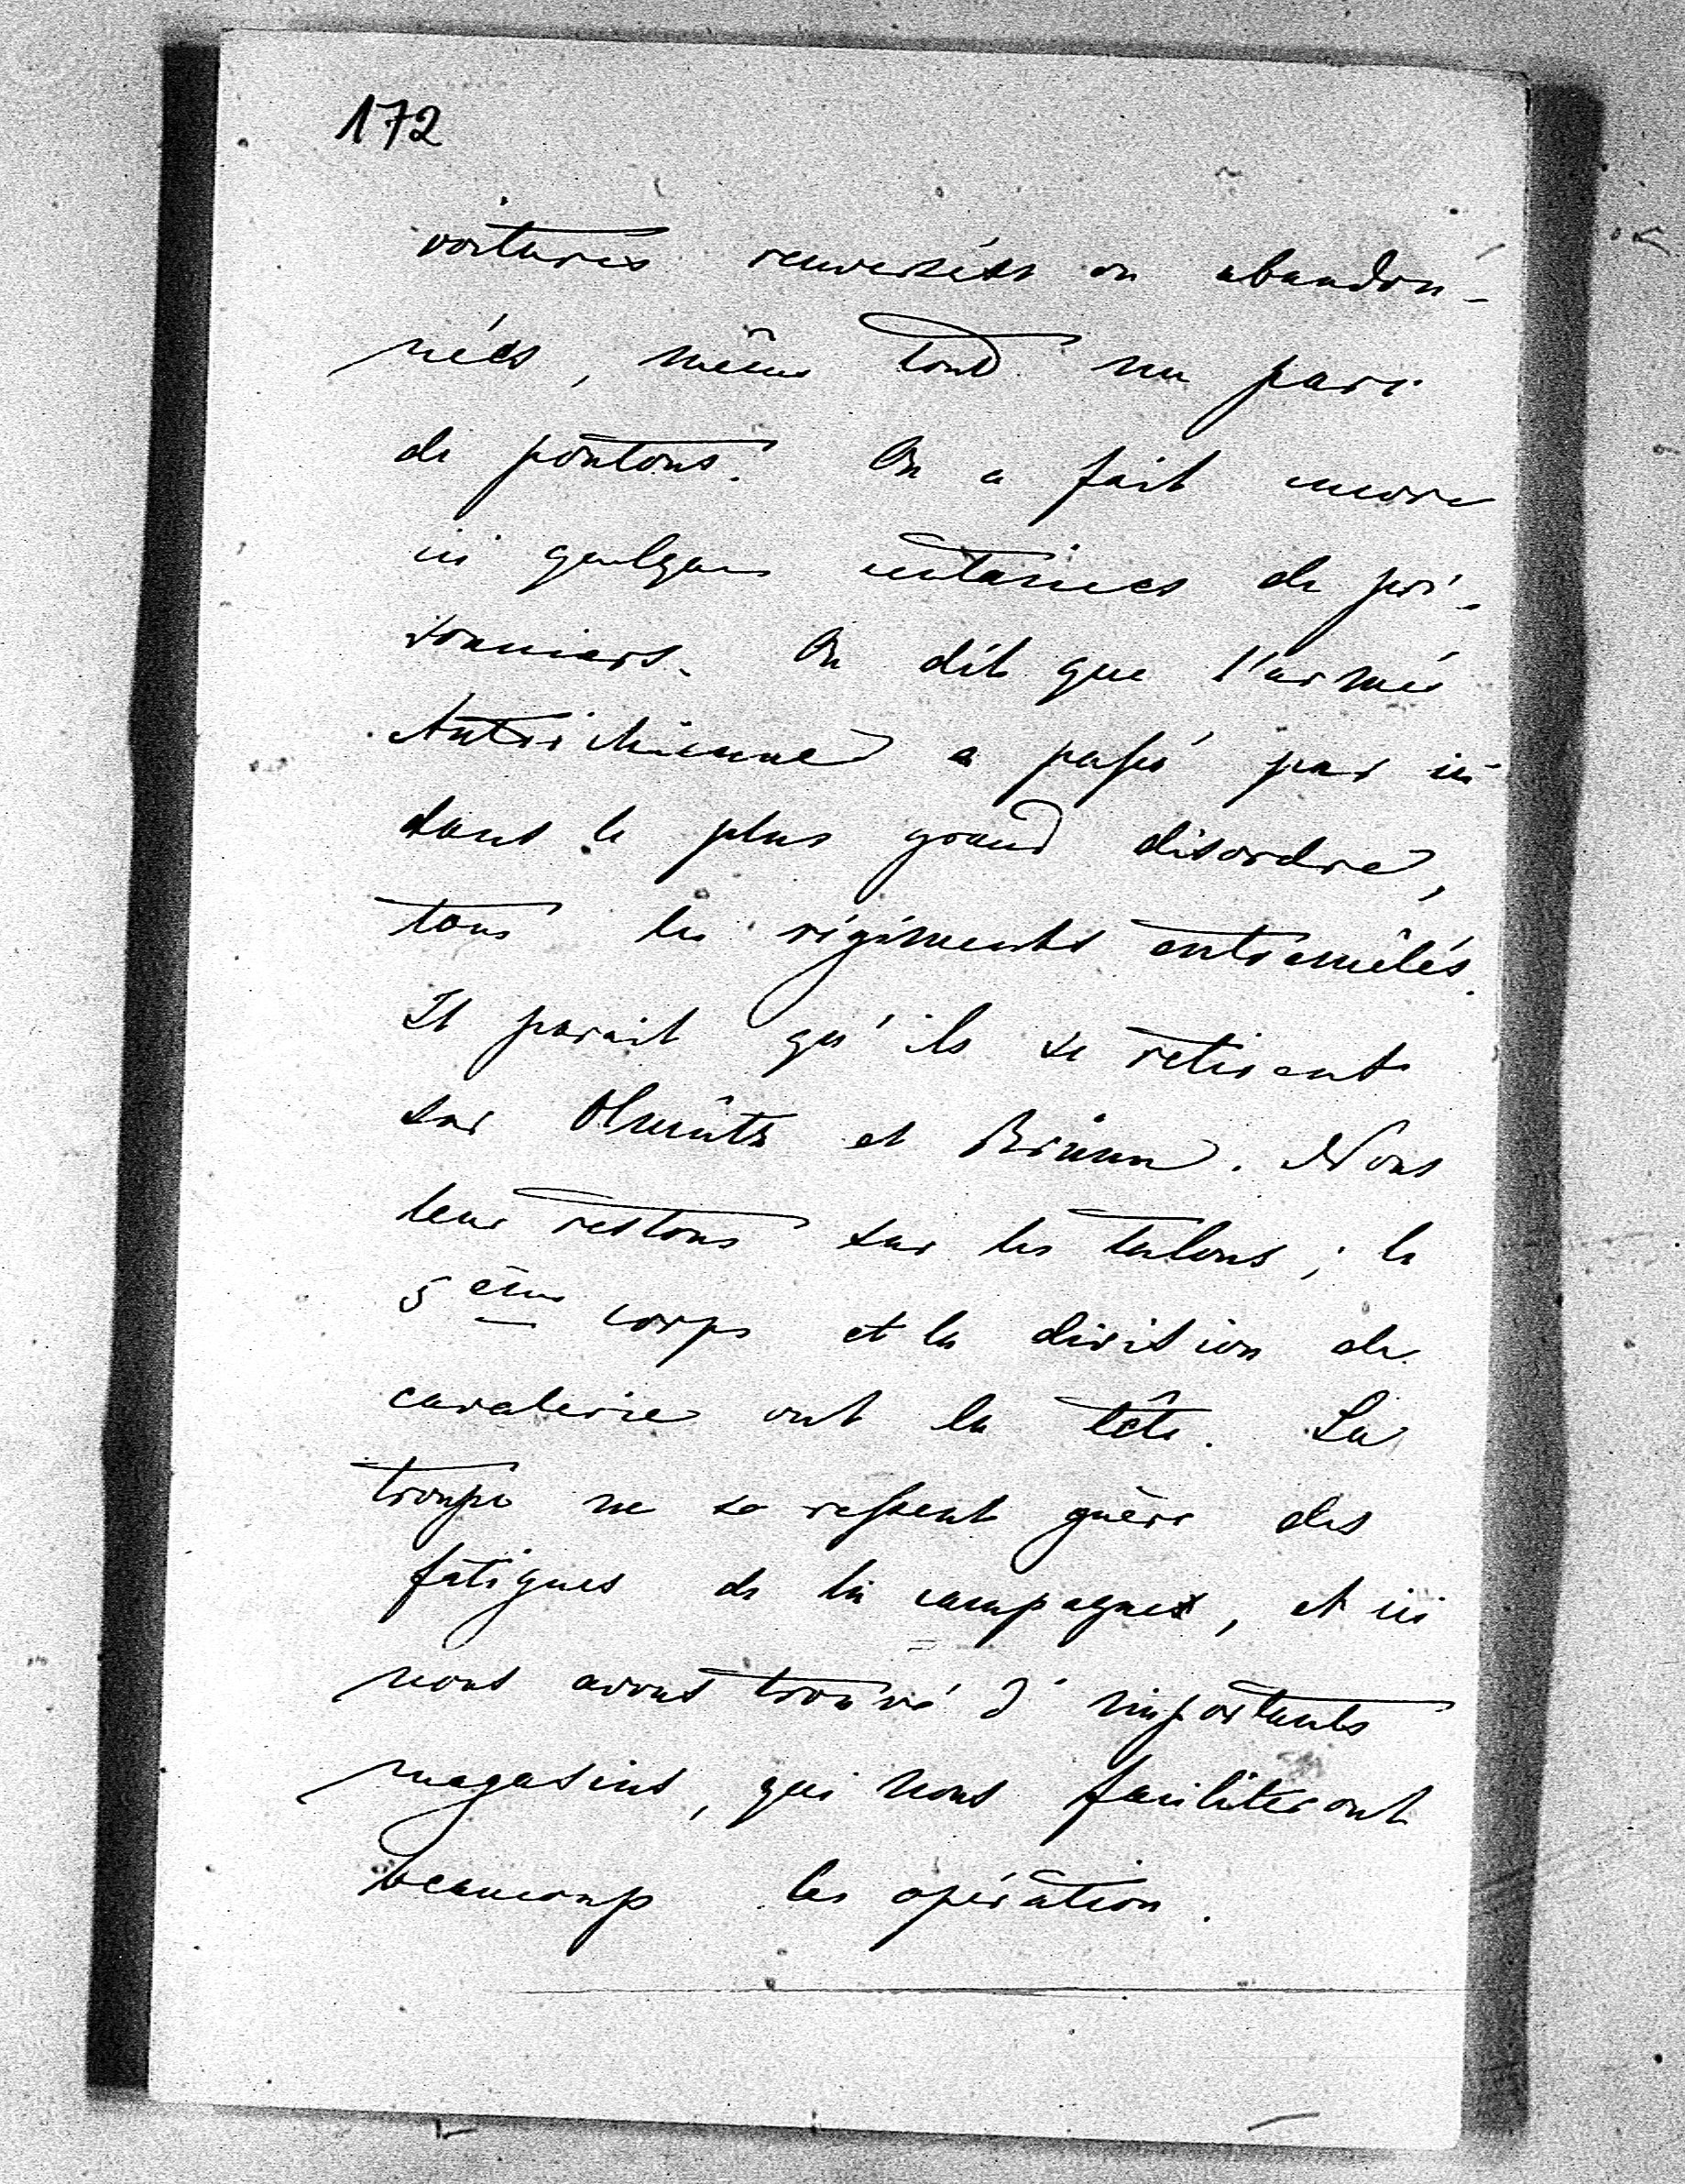 172
voitures renversées ou abandon-
nées, même tout un parc
de pontons. On a fait encore
ici quelques centaines de pri-
sonniers. On dit que l'armée
Autrichienne a passé par ici
dans le plus grand désordre,
tous les régiments entremêlés.
Il parait qu'ils se retirent
sur Olmütz et Brünn. Nous
leur restons sur les talons; le
5ème corps et la division de
cavalerie ont la tête. La
troupe ne se ressent guère des
fatigues de la campagne, et ici
nous avons trouvé d'importants
magasins, qui nous faciliteront
beaucoup les opération.